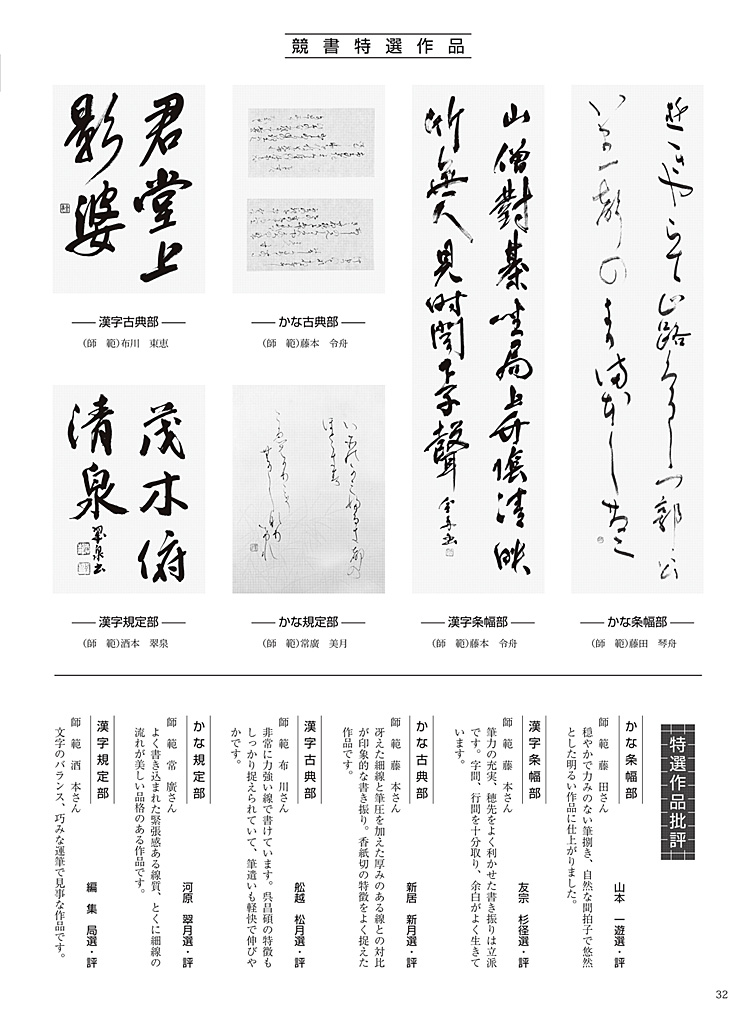 競書特選作品
君堂上
影婆
漢字古典部
(師　範)布川　東恵
かな古典部
(師　範)藤本　令舟
茂木俯
清泉
翠泉書
漢字規定部
(師　範)酒本　翠泉
かな規定部
(師　範)常廣　美月
山僧對棊坐局上竹陰清映
竹無人見時聞下子聲
漢字条幅部
(師　範)藤本　令舟
かな条幅部
(師　範)藤田　琴舟
特選作品批評
かな条幅部
山本　一遊選・評
師　範　藤　田さん
穏やかで力みのない筆捌き、自然な間拍子で悠然
とした明るい作品に仕上がりました。
漢字条幅部
友宗　杉径選・評
師　範　藤　本さん
筆力の充実、穂先をよく利かせた書き振りは立派
です。字間、行間を十分取り、余白がよく生きて
います。
かな古典部
新居　新月選・評
師　範　藤　本さん
冴えた細線と筆圧を加えた厚みのある線との対比
が印象的な書き振り。香紙切の特徴をよく捉えた
作品です。
漢字古典部
舩越　松月選・評
師　範　布　川さん
非常に力強い線で書けています。呉昌碩の特徴も
しっかり捉えられていて、筆遣いも軽快で伸びや
かです。
かな規定部
河原　翠月選・評
師　範　常　廣さん
よく書き込まれた緊張感ある線質、とくに細線の
流れが美しい品格のある作品です。
漢字規定部
編　集　局選・評
師　範　酒　本さん
文字のバランス、巧みな運筆で見事な作品です。
32